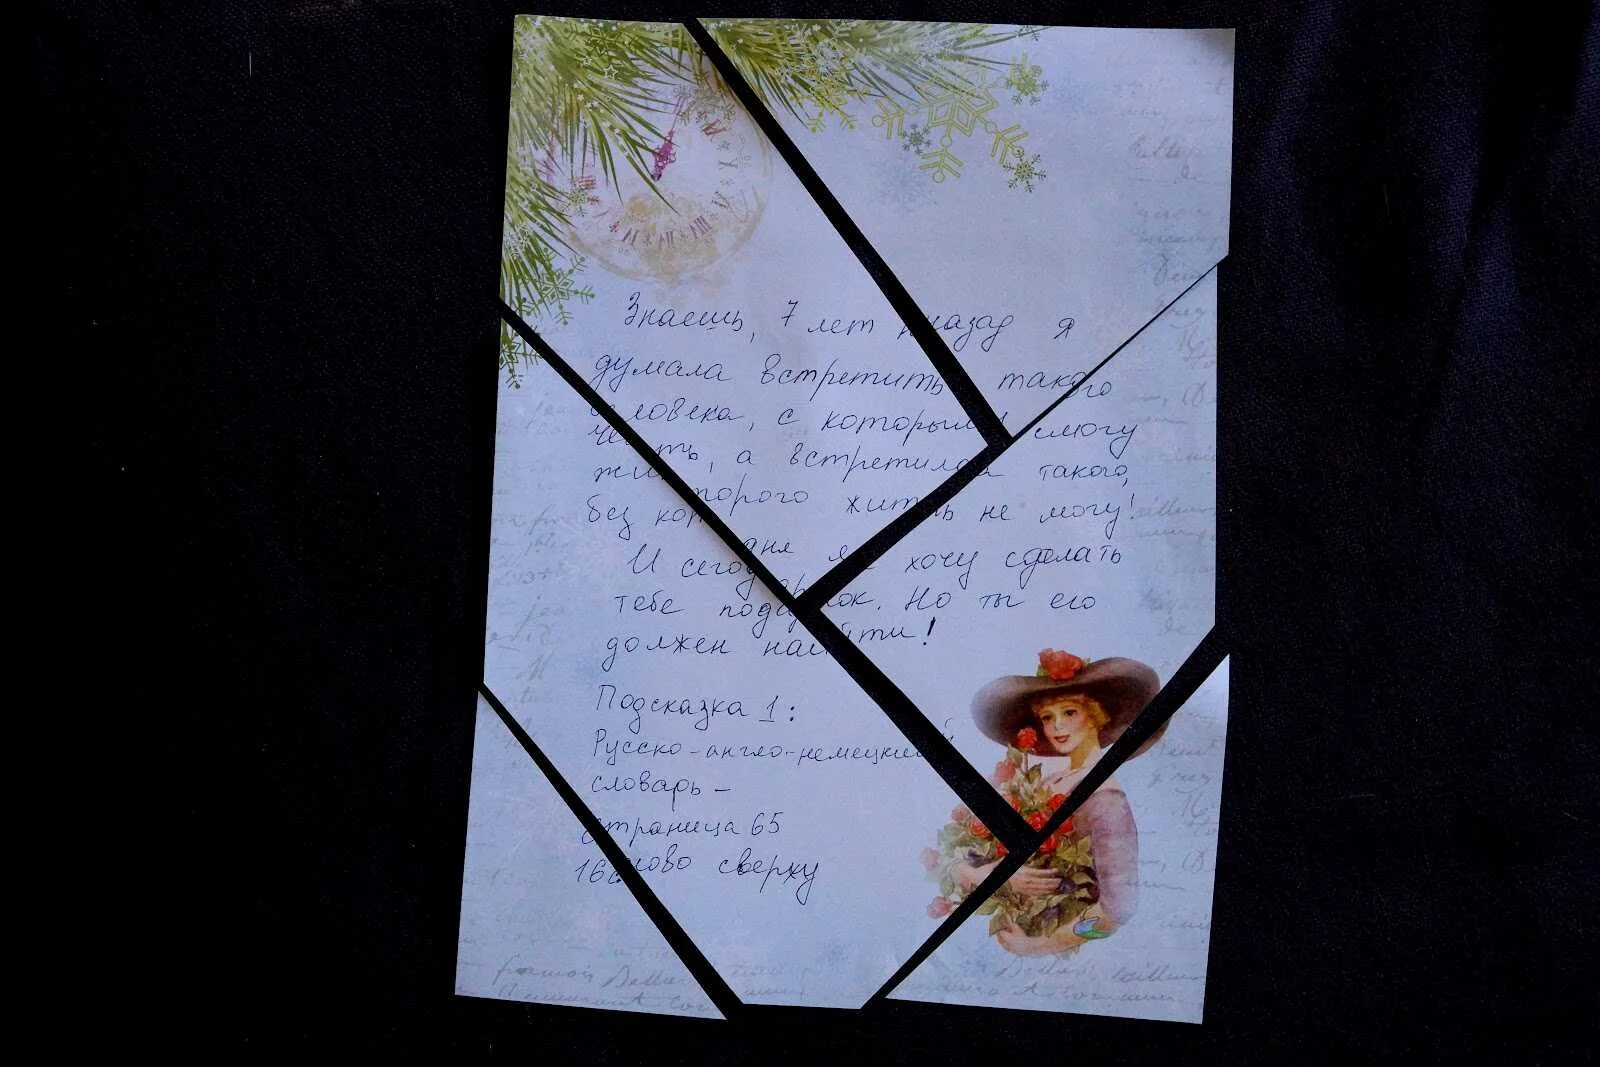 Знаешь, 7 лет назад я
думала встретить такого
человека, с которым смогу
жить, а встретила такого,
без которого жить не могу!
И сегодня я хочу сделать
тебе подарок. Но ты его
должен найти!
Подсказка 1:
Русско-англо-немецкий
словарь -
страница 65
16 слово сверху